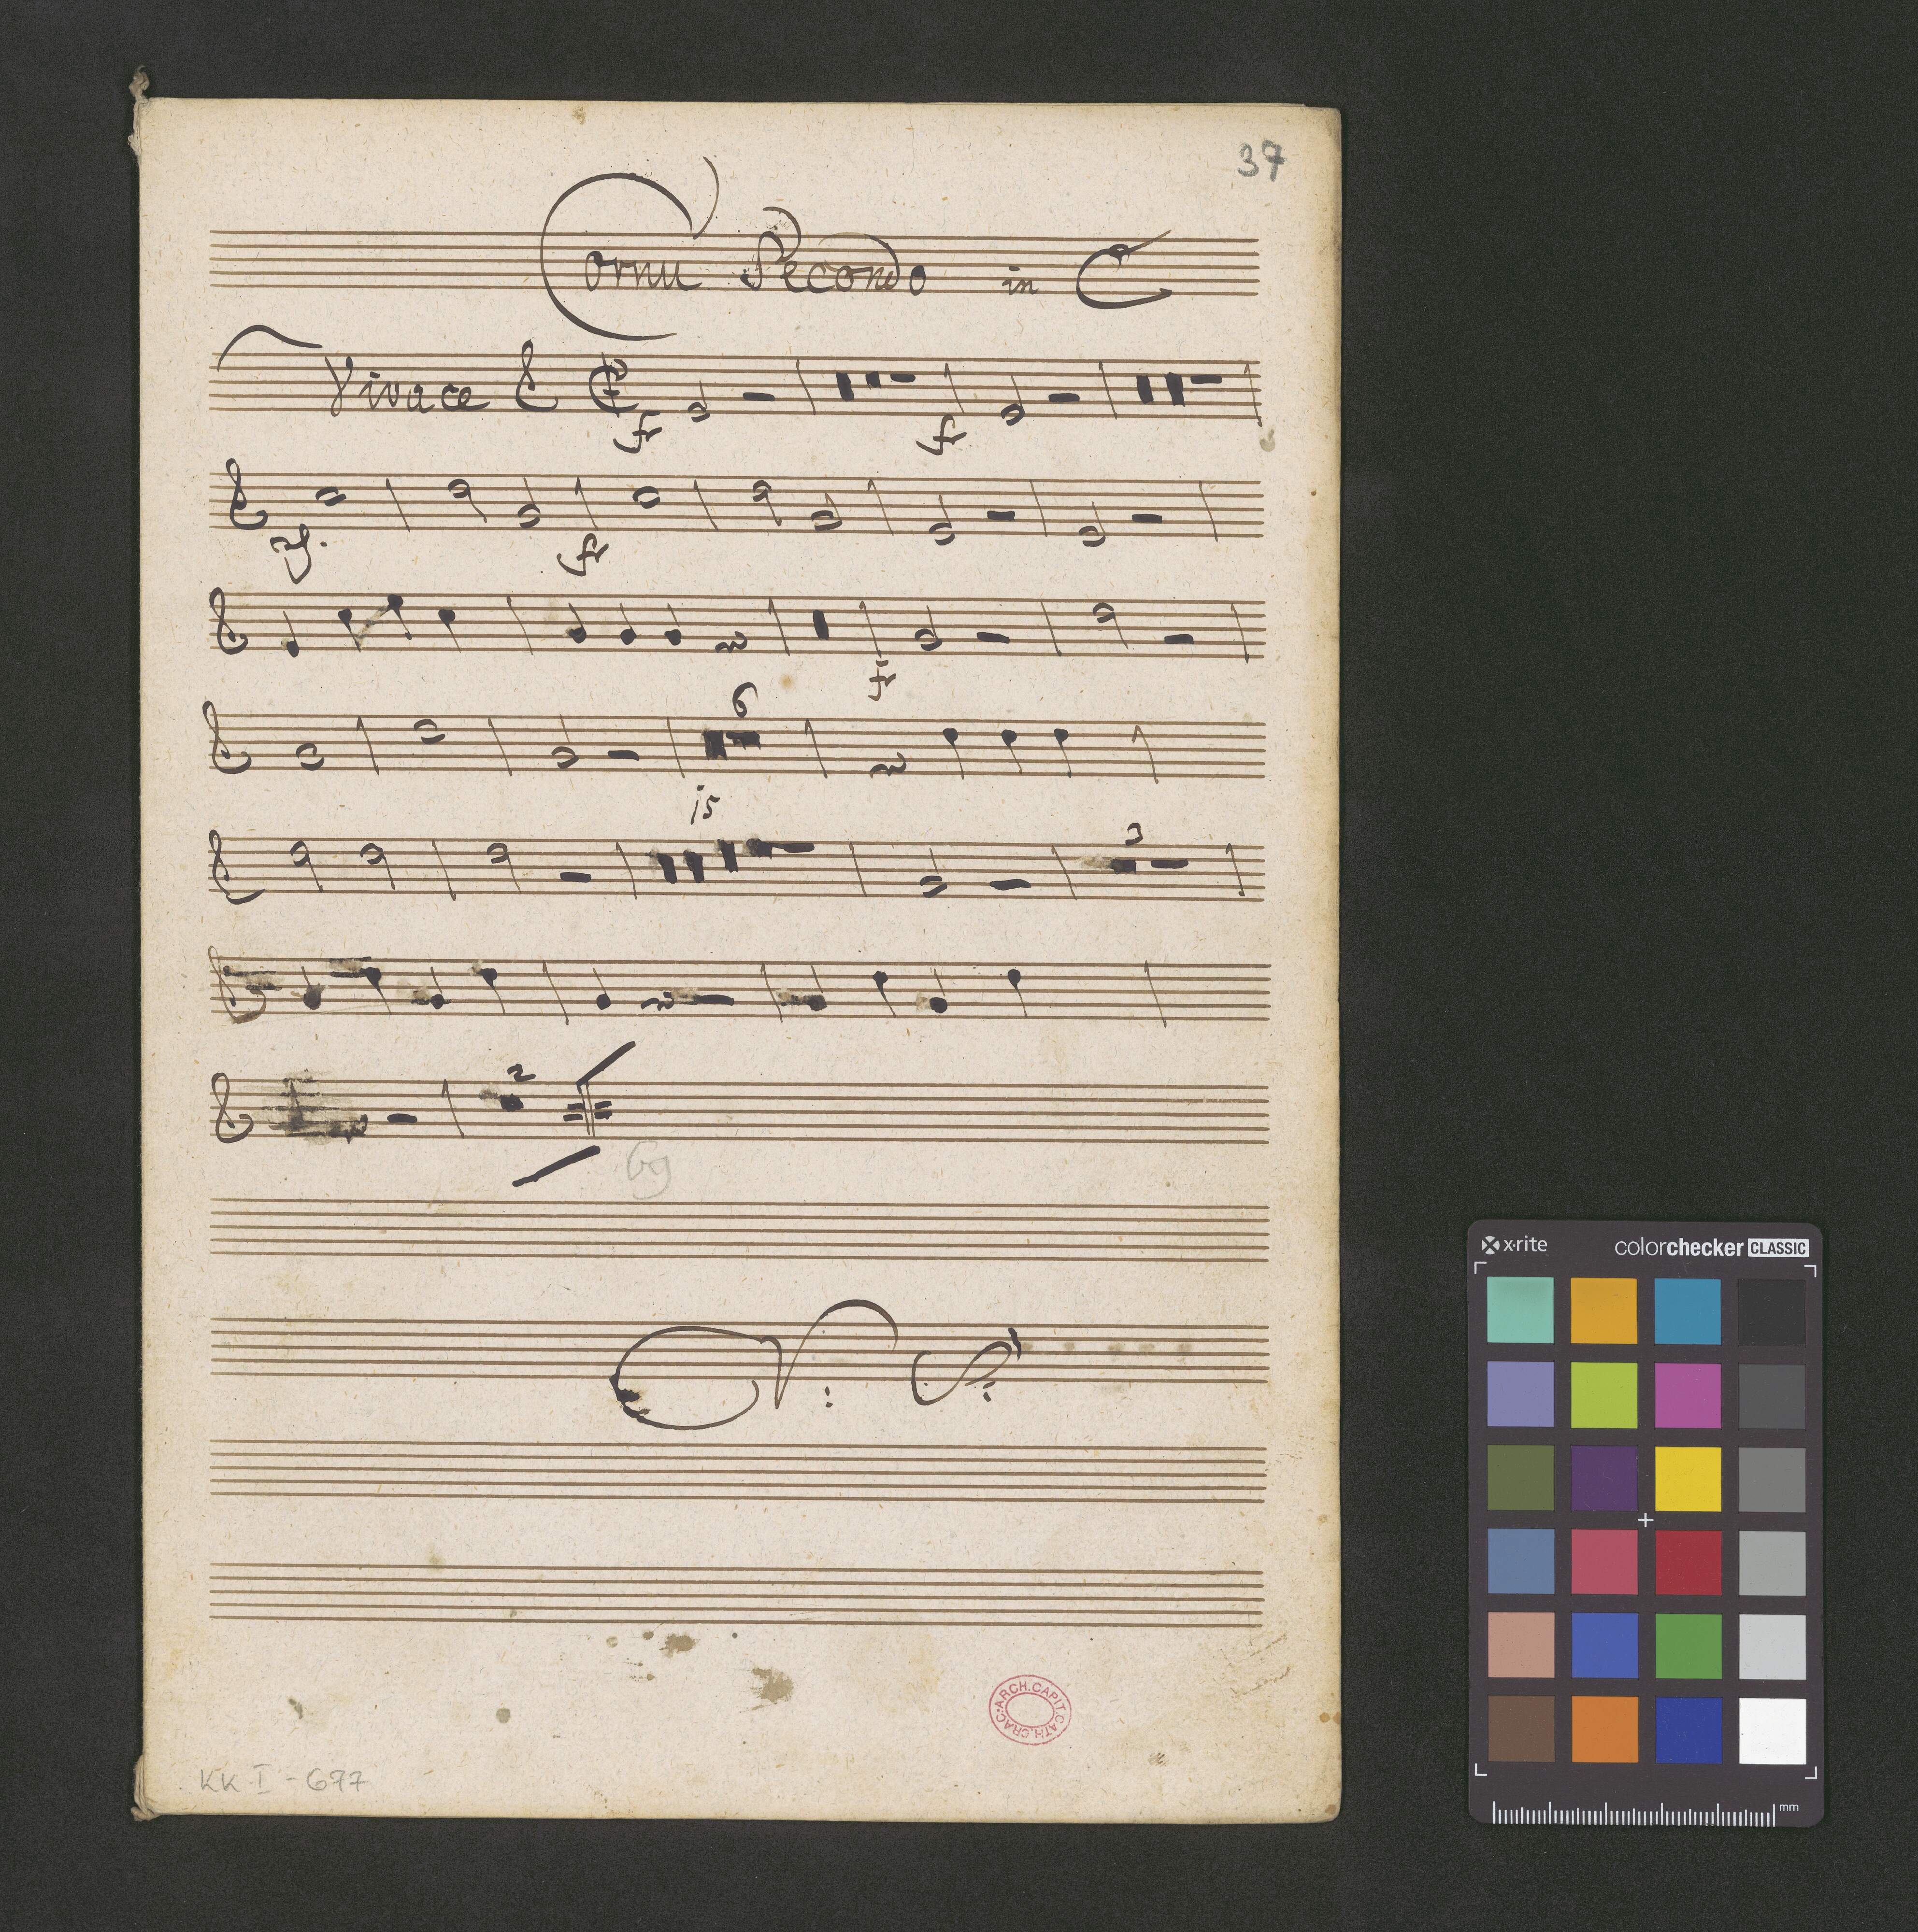 37
Cornu Secondo in C
Vivace
fr fr
fr
fr
6
15
3
2
69
V: S:
ARCH.CAPIT.CATH.CRAC.
KK I - 677
x·rite colorchecker CLASSIC
mm